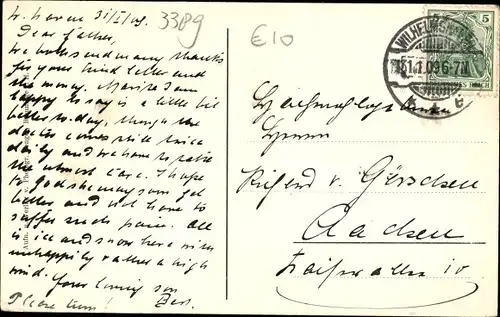 W. haven 31/I/09.
Dear father,
We both send many thanks
for your kind letter and
the money. I am
happy to say is a little bit
better to-day, though the
doctor comes still twice
daily and we have to take
the utmost care. I hope
to god she may soon get
better and not have to
suffer such pain. All
is ice and snow here with
unhappily rather a high
wind. Your loving son
Please turn!
3389
€10
WILHELMSHAVEN
31.1.09.6-7N
5
Herrn
Richard v. Görschen
Aachen
Kaiserallee 10